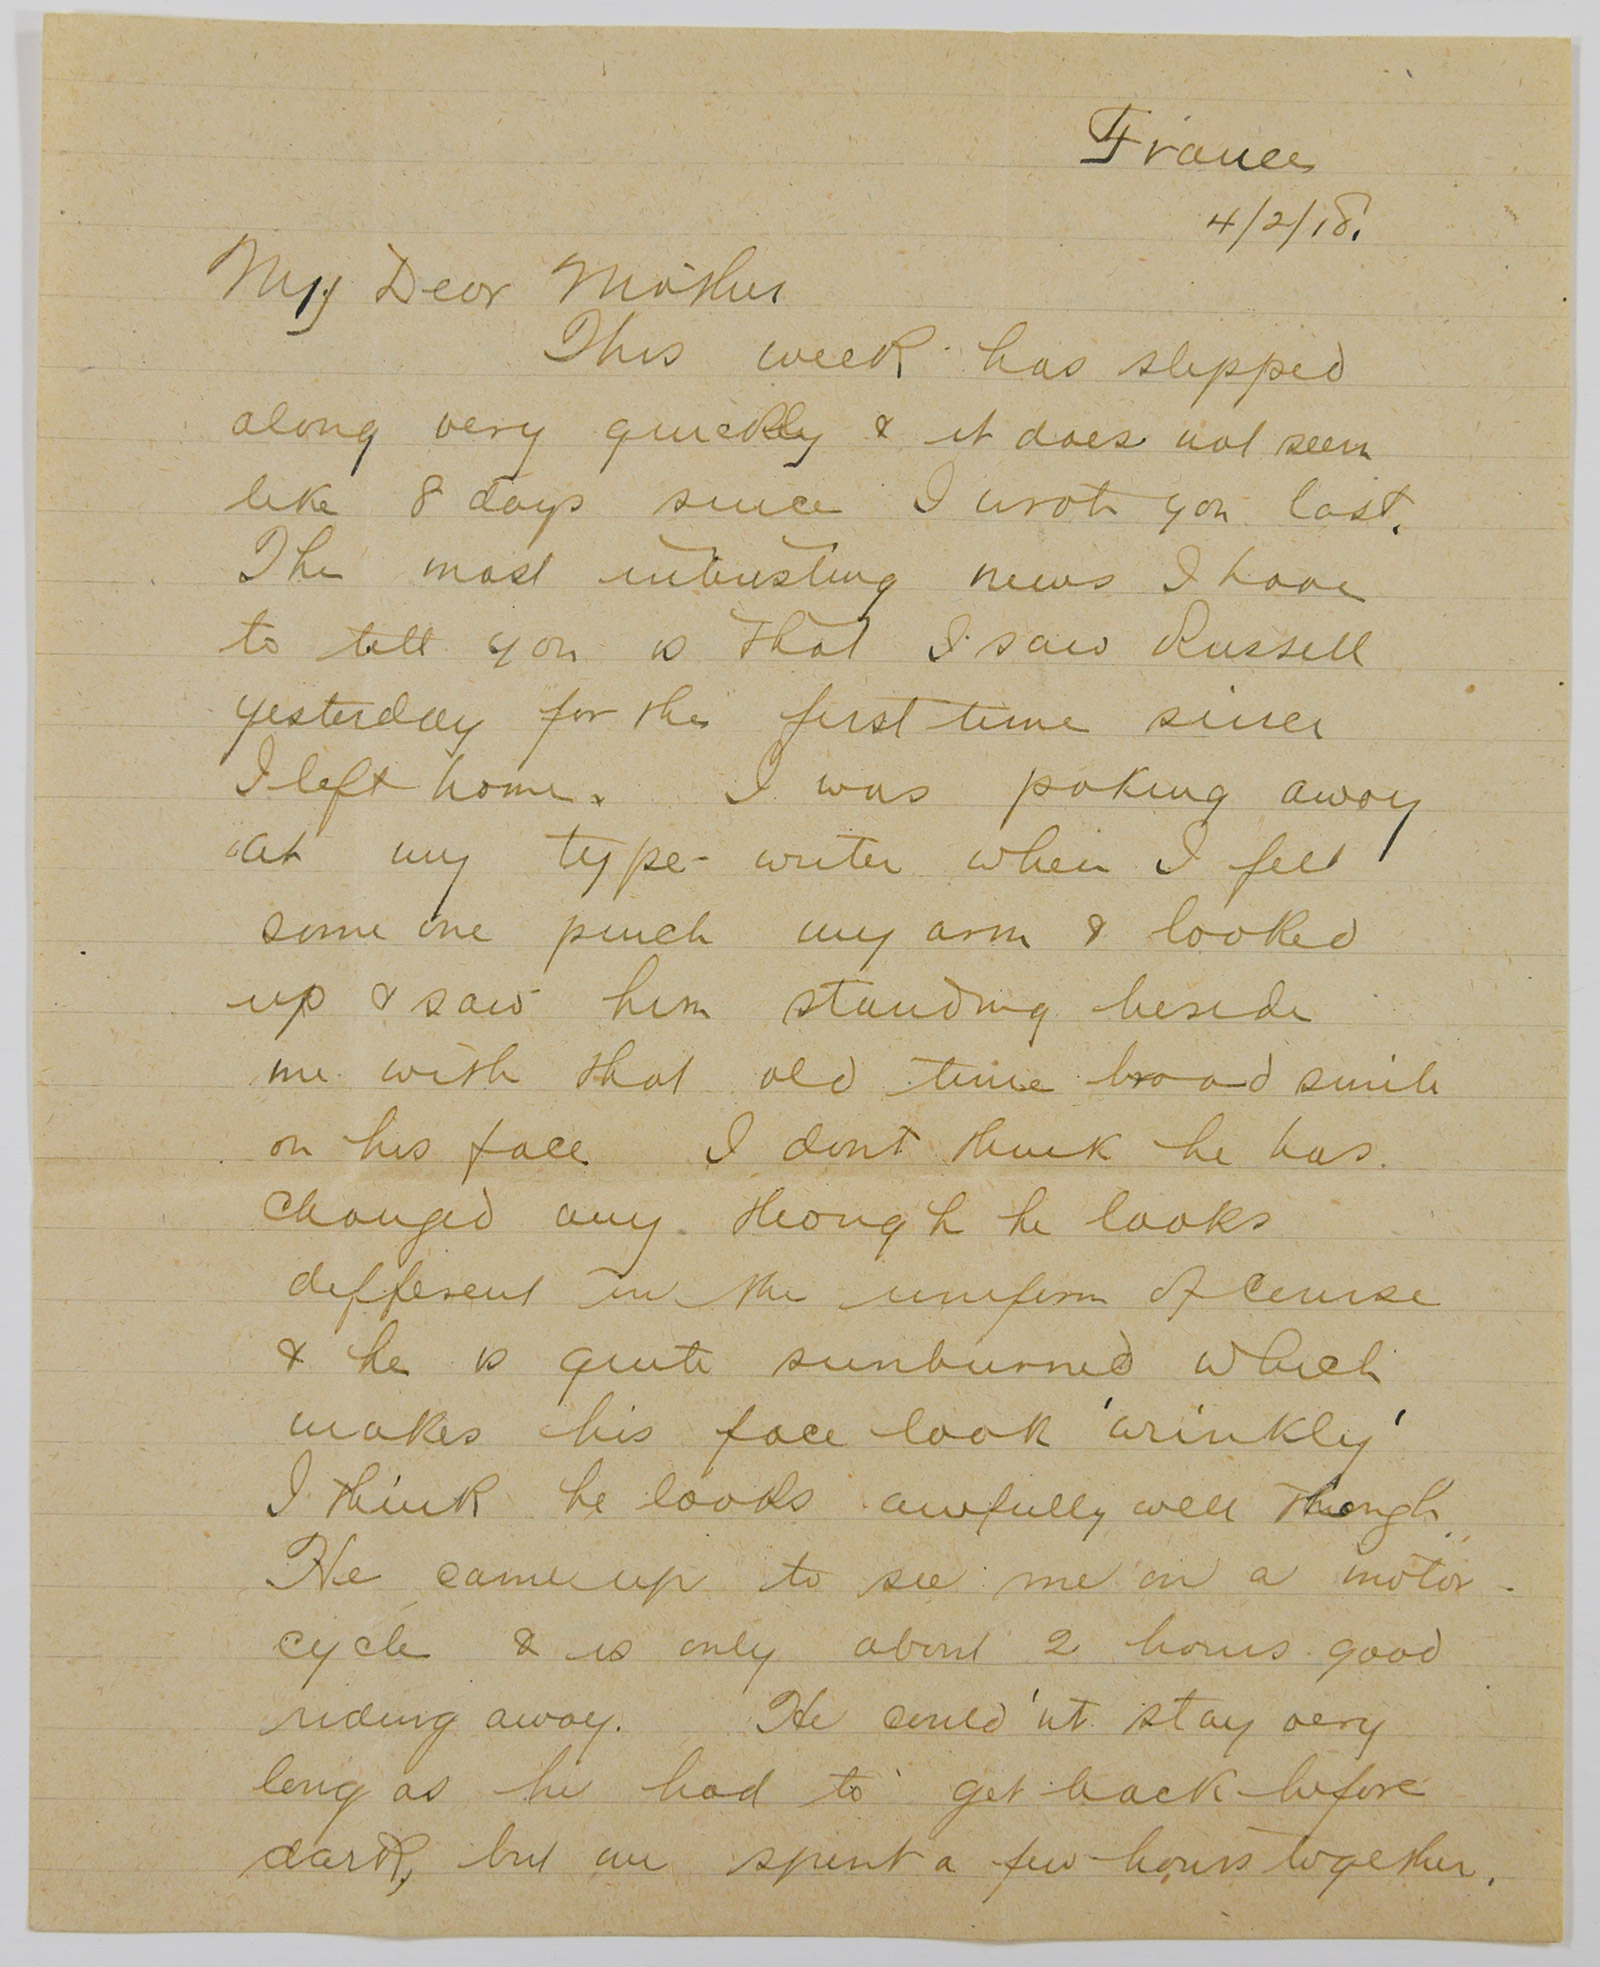 France
4/2/18.
My Dear Mother
This week has slipped
along very quickly & it does not seem
like 8 days since I wrote you last.
The most interesting news I have
to tell you is that I saw Russell
yesterday for the first time since
I left home. I was poking away
at my type-writer when I felt
some one pinch my arm & looked
up & saw him standing beside
me with that old time broad smile
on his face I dont think he has
changed any though he looks
different in the uniform of course
& he is quite sunburned which
makes his face look 'wrinkly'
I think he looks awfully well though.
He came up to see me on a motor-
cycle & is only about 2 hours good
riding away. He could'nt stay very
long as he had to get back before
dark, but we spent a few hours together.